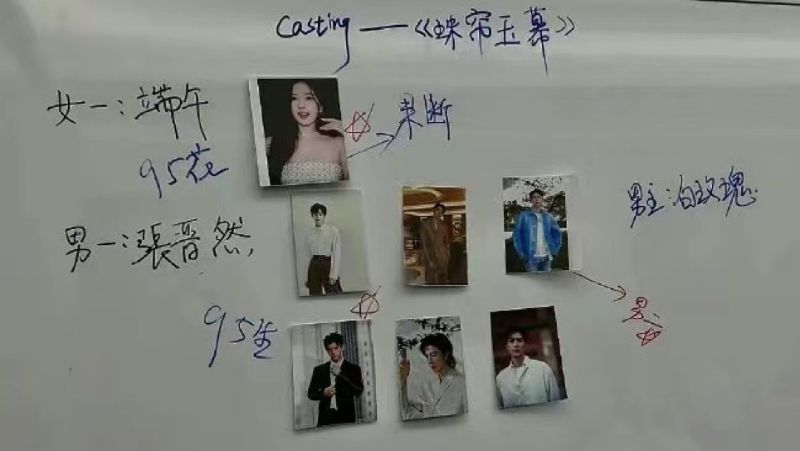 Casting——《珠帘玉幕》
女一：端午
果断
95花
男一：張晋然
男主：白玫瑰
95生
男二